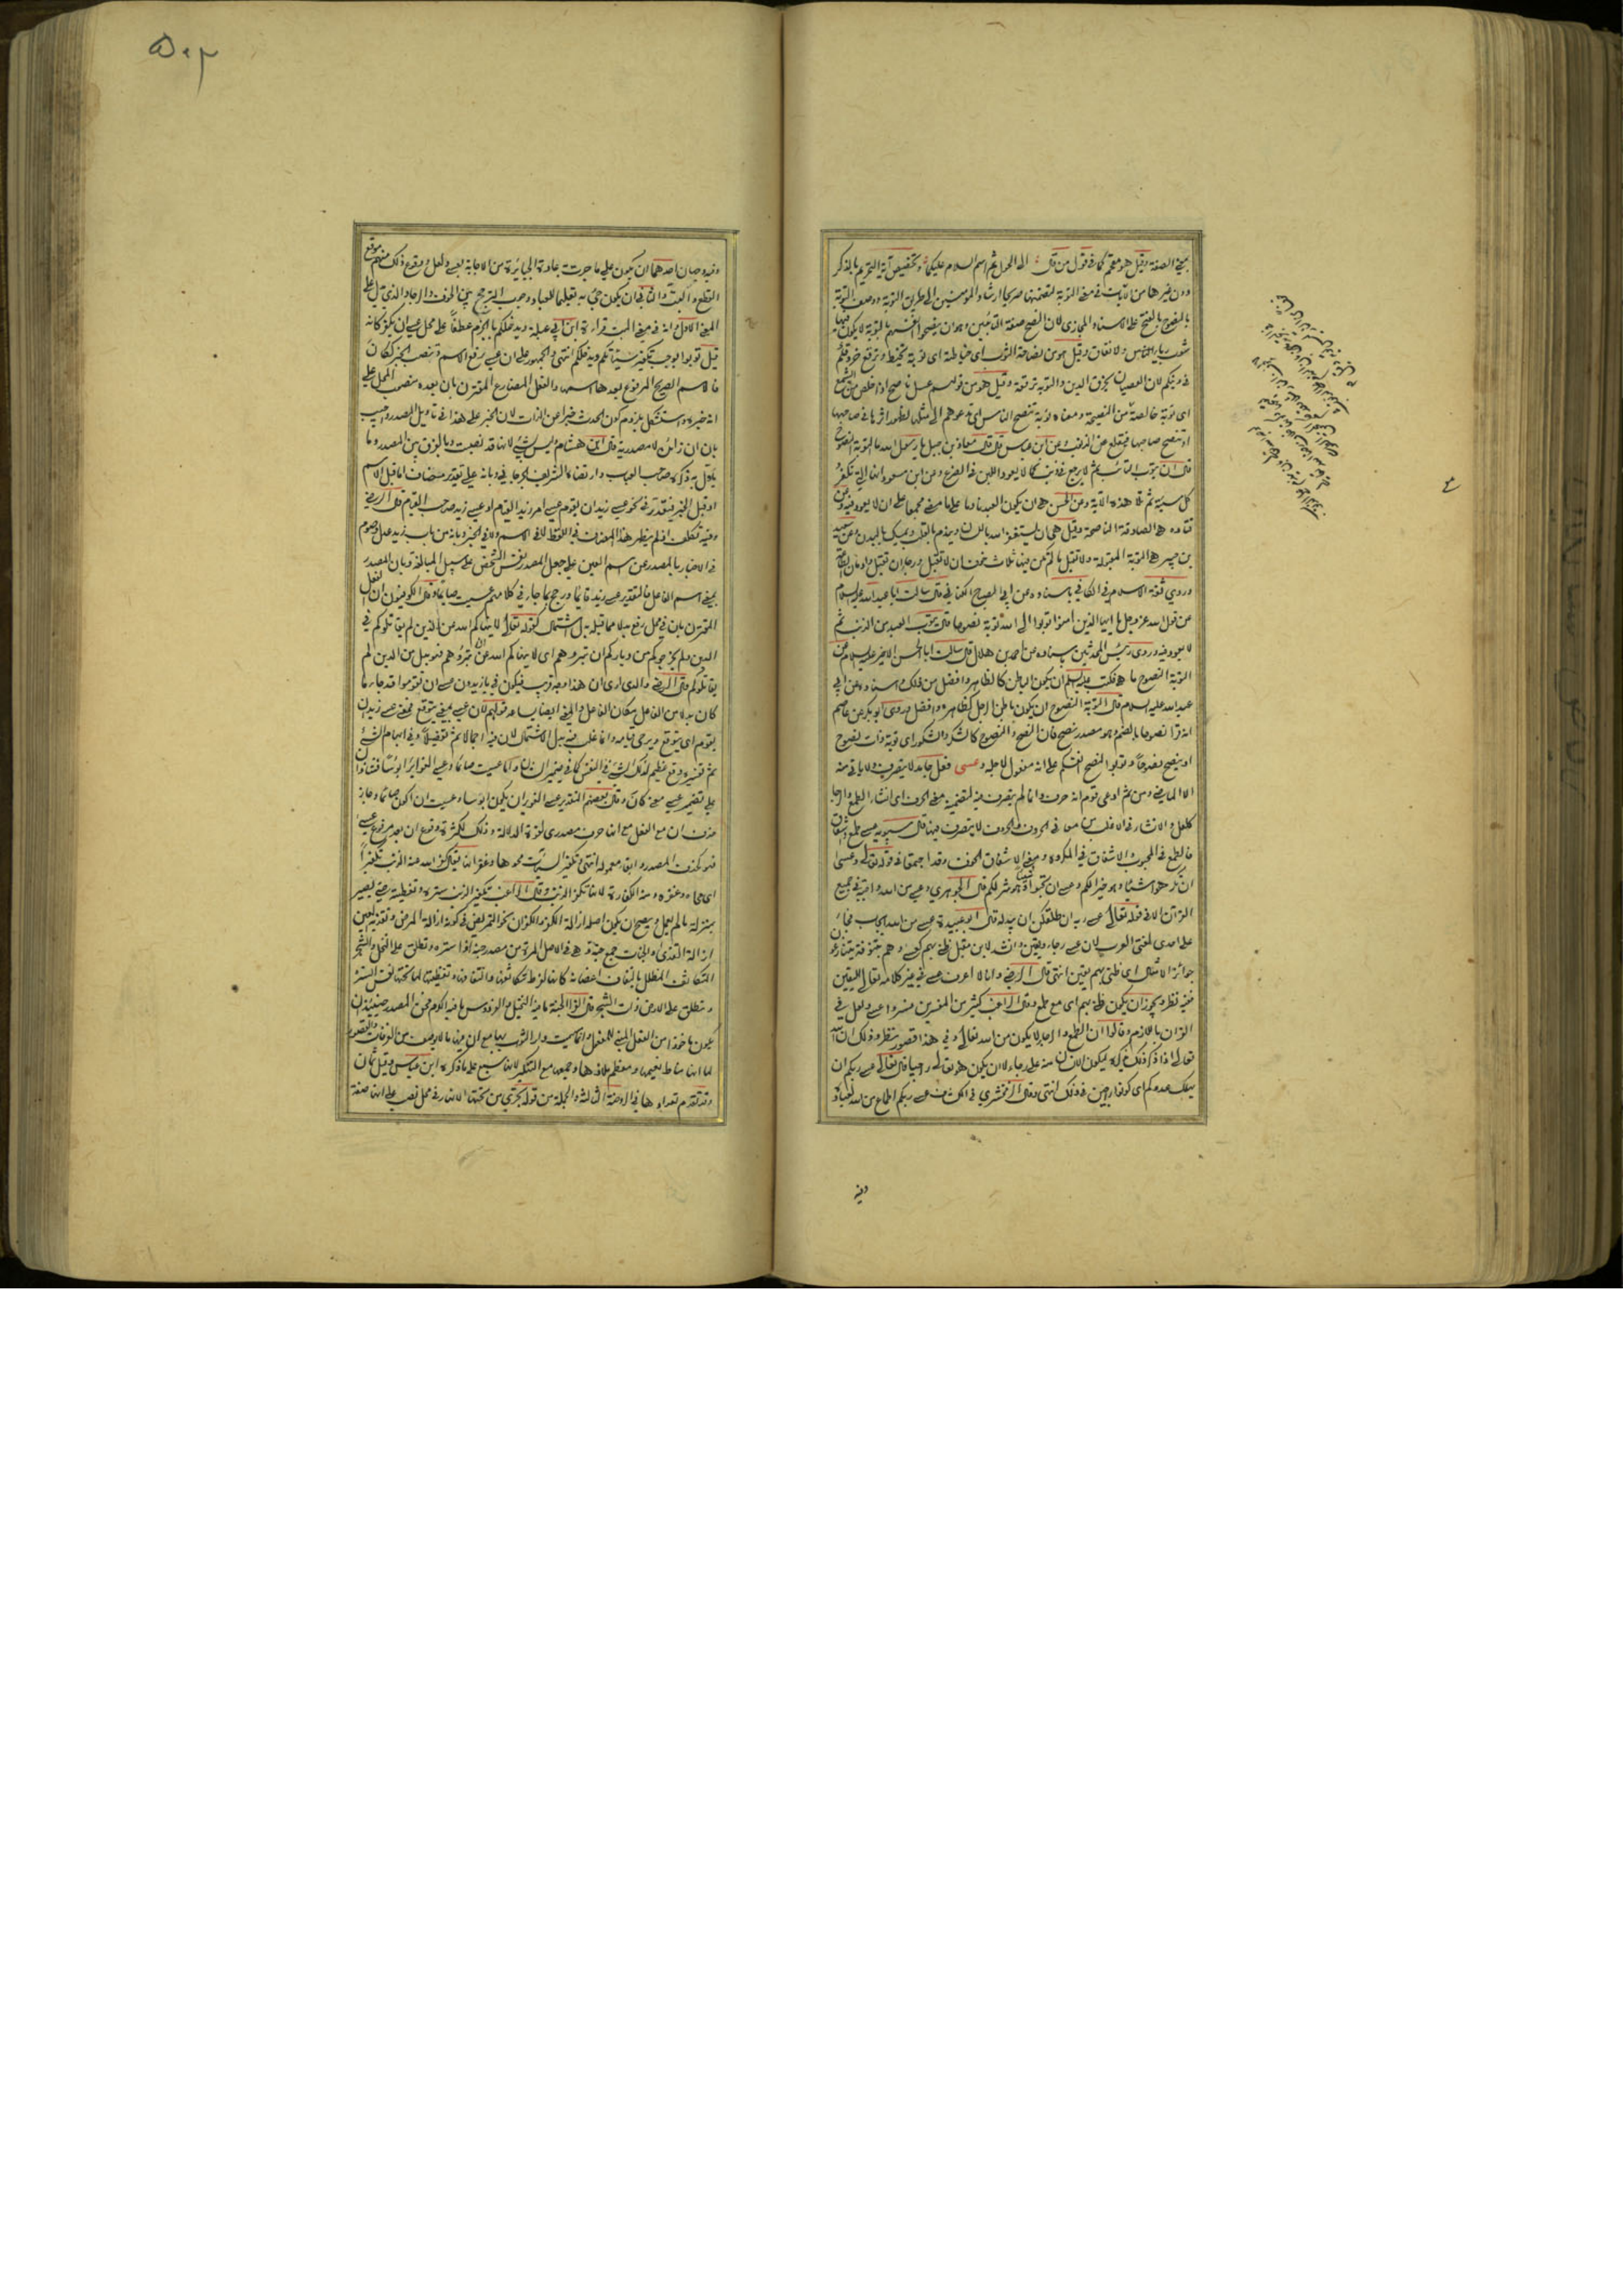 بمعنى الصفة وقيل هو مقحم كما في قول من قال الى الحول ثم اسم السلام عليكما وتخصيص آية التحريم بالذكر
دون غيرها من الآيات في معنى التوبة لتضمنها صريحا ارشاد المؤمنين الى طريق التوبة ووصف التوبة
بالنصوح بالفتح على الاسناد المجازي لان النصح صفة التائبين وهو ان ينصحوا انفسهم بالتوبة لا يكون فيها
شوب رياء الناس ولا نفاق وقيل هو من نصاحة الثوب اي خياطته اي توبة تخيط وترقع خروقكم
في دينكم لان العصيان يخرق الدين والتوبة ترقعه وقيل هو من قولهم عسل ناصح اذا خلص من الشمع
اي توبة خالصة من النصيحة ومعناه توبة تنصح الناس اي تدعوهم الى مثلها لظهور اثرها في صاحبها
او تنصح صاحبها فيقلع عن الذنوب وعن ابن عباس قال قال معاذ بن جبل يا رسول الله ما التوبة النصوح
قال ان يتوب التائب ثم لا يرجع في ذنب كما لا يعود اللبن في الضرع وعن ابن مسعود انها التي تكفر
كل سيئة ثم تلا هذه الآية وعن الحسن هي ان يكون العبد نادما على ما مضى مجمعا على ان لا يعود فيه وعن
قتادة هي الصادقة الناصحة وقيل هي ان يستغفر الله باللسان ويندم بالقلب ويمسك بالبدن وعن سعيد
بن جبير هي التوبة المقبولة ولا تقبل ما لم تكن فيها ثلاث خوف ان لا تقبل ورجاء ان تقبل وادمان الطاعة
وروى ثقة الاسلام في الكافي باسناده عن ابي الصباح الكناني قال سالت ابا عبد الله عليه السلام
عن قول الله عز وجل يا ايها الذين امنوا توبوا الى الله توبة نصوحا قال يتوب العبد من الذنب ثم
لا يعود فيه وروى رئيس المحدثين باسناده عن احمد بن هلال قال سالت ابا الحسن الاخير عليه السلام عن
التوبة النصوح ما هي فكتب عليه السلام ان يكون الباطن كالظاهر وافضل من ذلك وباسناده عن ابي
عبد الله عليه السلام قال التوبة النصوح ان يكون باطن الرجل كظاهره وافضل وروى ابو بكر عن عاصم
انه قرأ نصوحا بالضم وهو مصدر نصح فان النصح والنصوح كالشكر والشكور اي توبة ذات نصوح
او ينصح نصوحا وتوبوا لنصح انفسكم على انه مفعول لاجله وعسى فعل جامد لا يتصرف ولا ياتي منه
الا الماضي ومن ثم ادعى قوم انه حرف وانما لم يتصرف فيه لتضمنه معنى الحرف اي انشاء الطمع والرجاء
كلعل والانشاء في الاغلب من معاني الحروف والحروف لا يتصرف فيها قال سيبويه عسى طمع واشفاق
فالطمع في المحبوب والاشفاق في المكروه ومعنى الاشفاق الخوف وقد اجتمعا في قوله تعالى وعسى
ان تكرهوا شيئا وهو خير لكم وعسى ان تحبوا شيئا وهو شر لكم قال الجوهري وعسى من الله واجبة في جميع
القرآن الا في قوله تعالى عسى ربه ان طلقكن ان يبدله قال ابو عبيدة عسى من الله ايجاب فجاءت
على احدى لغتي العرب لان عسى رجاء ويقين وانشد لابن مقبل ظني بهم كعسى وهم بتنوفة يتنازعون
جوائز الامثال اي ظني بهم يقين انتهى قال الرضي وانا لا اعرف عسى في غير كلامه تعالى لليقين
ففيه نظر ويجوز ان يكون ظني بهم اي مع طمع وقال الراغب كثير من المفسرين فسروا عسى ولعل في
القرآن باللازم وقالوا ان الطمع والرجاء لا يكون من الله تعالى وفي هذا قصور نظر وذلك ان الله
تعالى اذا ذكر ذلك يذكره ليكون الانسان منه على رجاء لا ان يكون هو تعالى راجيا قال تعالى عسى ربكم ان
يهلك عدوكم اي كونوا راجين في ذلك انتهى وقال الزمخشري في الكشاف عسى ربكم اطماع من الله لعباده
وفيه
۵۰۳
وفيه وجهان احدهما ان يكون على ما جرت به عادة الجبابرة من الاجابة بعسى ولعل ووقوع ذلك منهم موقع
القطع والبت والثاني ان يكون جيء به تعليما للعباد وجوب الترجح بين الخوف والرجاء والذي يدل على
المعنى الاول وانه في معنى البت قراءة ابن ابي عبلة ويدخلكم بالجزم عطفا على محل عسى ان يكفر كانه
قيل توبوا يوجب تكفير سيئاتكم ويدخلكم انتهى والجمهور على ان عسى ترفع الاسم وتنصب الخبر ككان
فالاسم الصريح المرفوع بعدها اسمها والفعل المضارع المقترن بان بعده منصوب المحل على
انه خبره واستشكل بلزوم كون الحدث خبرا عن الذات لان الخبر على هذا في تاويل المصدر واجيب
بان ان زائدة لا مصدرية قال ابن هشام وليس بشيء لانها قد نصبت وبالفرق بين المصدر وما
يأول به ذكره صاحب العباب وارتضاه السيد الشريف الجرجاني وبانه على تقدير مضاف اما قبل الاسم
او قبل الخبر فيقدر في نحو عسى زيد ان يقوم عسى امر زيد القيام او عسى زيد صاحب القيام قال الرضي
وفيه تكلف اذ لم يظهر هذا المضاف في اللفظ لا في الاسم ولا في الخبر وبانه من باب زيد عدل وصوم
في الاخبار بالمصدر عن اسم العين على جعل المصدر نفس الشخص على سبيل المبالغة وبان المصدر
بمعنى اسم الفاعل فالتقدير عسى زيد قائما ورجح بما جاء في كلامهم عسيت صائما وقال الكوفيون ان الفعل
المقترن بان في محل رفع بدلا مما قبله بدل اشتمال كقوله تعالى لا ينهاكم الله عن الذين لم يقاتلوكم في
الدين ولم يخرجوكم من دياركم ان تبروهم اي لا ينهاكم الله عن ان تبروهم فهو بدل من الذين لم
يقاتلوكم قال الرضي والذي ارى ان هذا وجه قريب فيكون في يا زيدون عسى ان تقوموا قد جاء ما
كان بدلا من الفاعل مكان الفاعل والمعنى ايضا يساعد قولهم لان عسى بمعنى يتوقع فمعنى عسى زيد ان
يقوم اي يتوقع ويرجى قيامه وانما غلب فيه بدل الاشتمال لان فيه اجمالا ثم تفصيلا وفي ابهام الشيء
ثم تفسيره وقع عظيم لذلك الشيء في النفس كما في ضمير الشان واما عسيت صائما وعسى الغوير ابؤسا فشاذان
على تضمين عسى معنى كان وقال بعضهم التقدير عسى الغوير ان يكون ابؤسا وعسيت ان اكون صائما وجاز
حذف ان مع الفعل مع انها حرف مصدري لقوة الدلالة وذلك لكثرة وقوع ان بعد مرفوع عسى
فهو كحذف المصدر وابقاء معموله انتهى وتكفير السيئات محوها وغفرانها يقال كفر الله عنه الذنب تكفيرا
اي محاه وغفره ومنه الكفارة لانها تكفر الذنب وقال الراغب تكفير الذنب ستره وتغطيته حتى يصير
بمنزلة ما لم يعمل ويصح ان يكون اصله ازالة الكفر والكفران نحو التمريض في كونه ازالة المرض وتقذية العين
ازالة القذى والجنات جمع جنة وهي في الاصل المرة من مصدر جنه اذا ستره وتطلق على النخل والشجر
المتكاثف المظلل بالتفاف اغصانه كانها لفرط تكاثفها والتفافها وتغطيتها لما تحتها نفس السترة
وتطلق على الارض ذات الشجر قال الفراء الجنة ما فيه النخيل والفردوس ما فيه الكرم
لما انها مناط نعيمها ومعظم ملاذها وجمعها مع التنكير لانها سبع على ما ذكره ابن عباس وقيل ثمان
وقد تقدم تعدادها في الروضة الثالثة والجملة من قوله تجري من تحتها الانهار في محل نصب على انها صفة